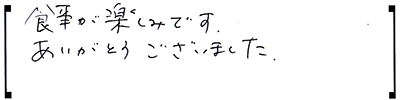 食事が楽しみです.
ありがとうございました.